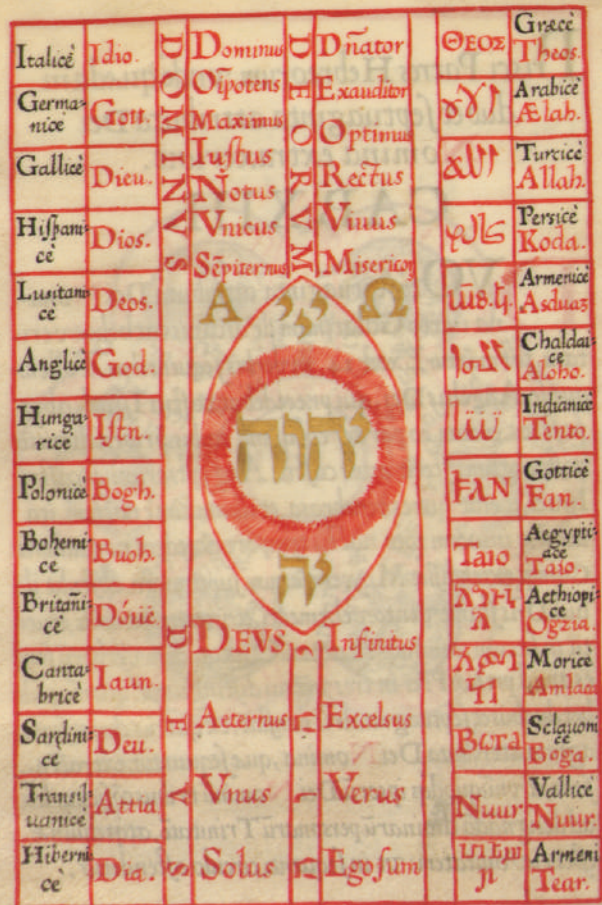 Italicè Idio.
Germa-
nicè Gott.
Gallicè Dieu.
Hiſpani
cè Dios.
Luſitani
cè Deos.
Anglicè God.
Hunga-
ricè Iſtn.
Polonicè Bogh.
Bohemi
cè Buoh.
Britañi-
cè Dóüè
Canta-
bricè Iaun.
Sardini-
cè Deu.
Tranſil-
uanicè Attia
Hiberni
cè Dia.
DOMINVS
Dominus
Oīpotens
Maximus
Iuſtus
Notus
Vnicus
Sēpiternus
DEORVM
Dñator
Exauditor
Optimus
Rectus
Viuus
Miſericors
Α Ω
יהוה
יה
DEVS
DEVS
Aeternus
Vnus
Solus
Infinitus
Excelsus
Verus
Ego ſum
ΘΕΟΣ Græcè
Theos.
Arabicè
Ælah.
Turcicè
Allah.
Persicè
Koda.
Armenicè
Asduaz
Chaldai-
cè
Aloho.
Indianicè
Tento.
FAN Gotticè
Fan.
Taio Aegypti-
acè
Taio.
Aethiopi-
cè
Ogzia.
Moricè
Amlaca
Bωra Sclauoni
cè
Boga.
Nuur Vallicè
Nuur.
Armeni
Tear.